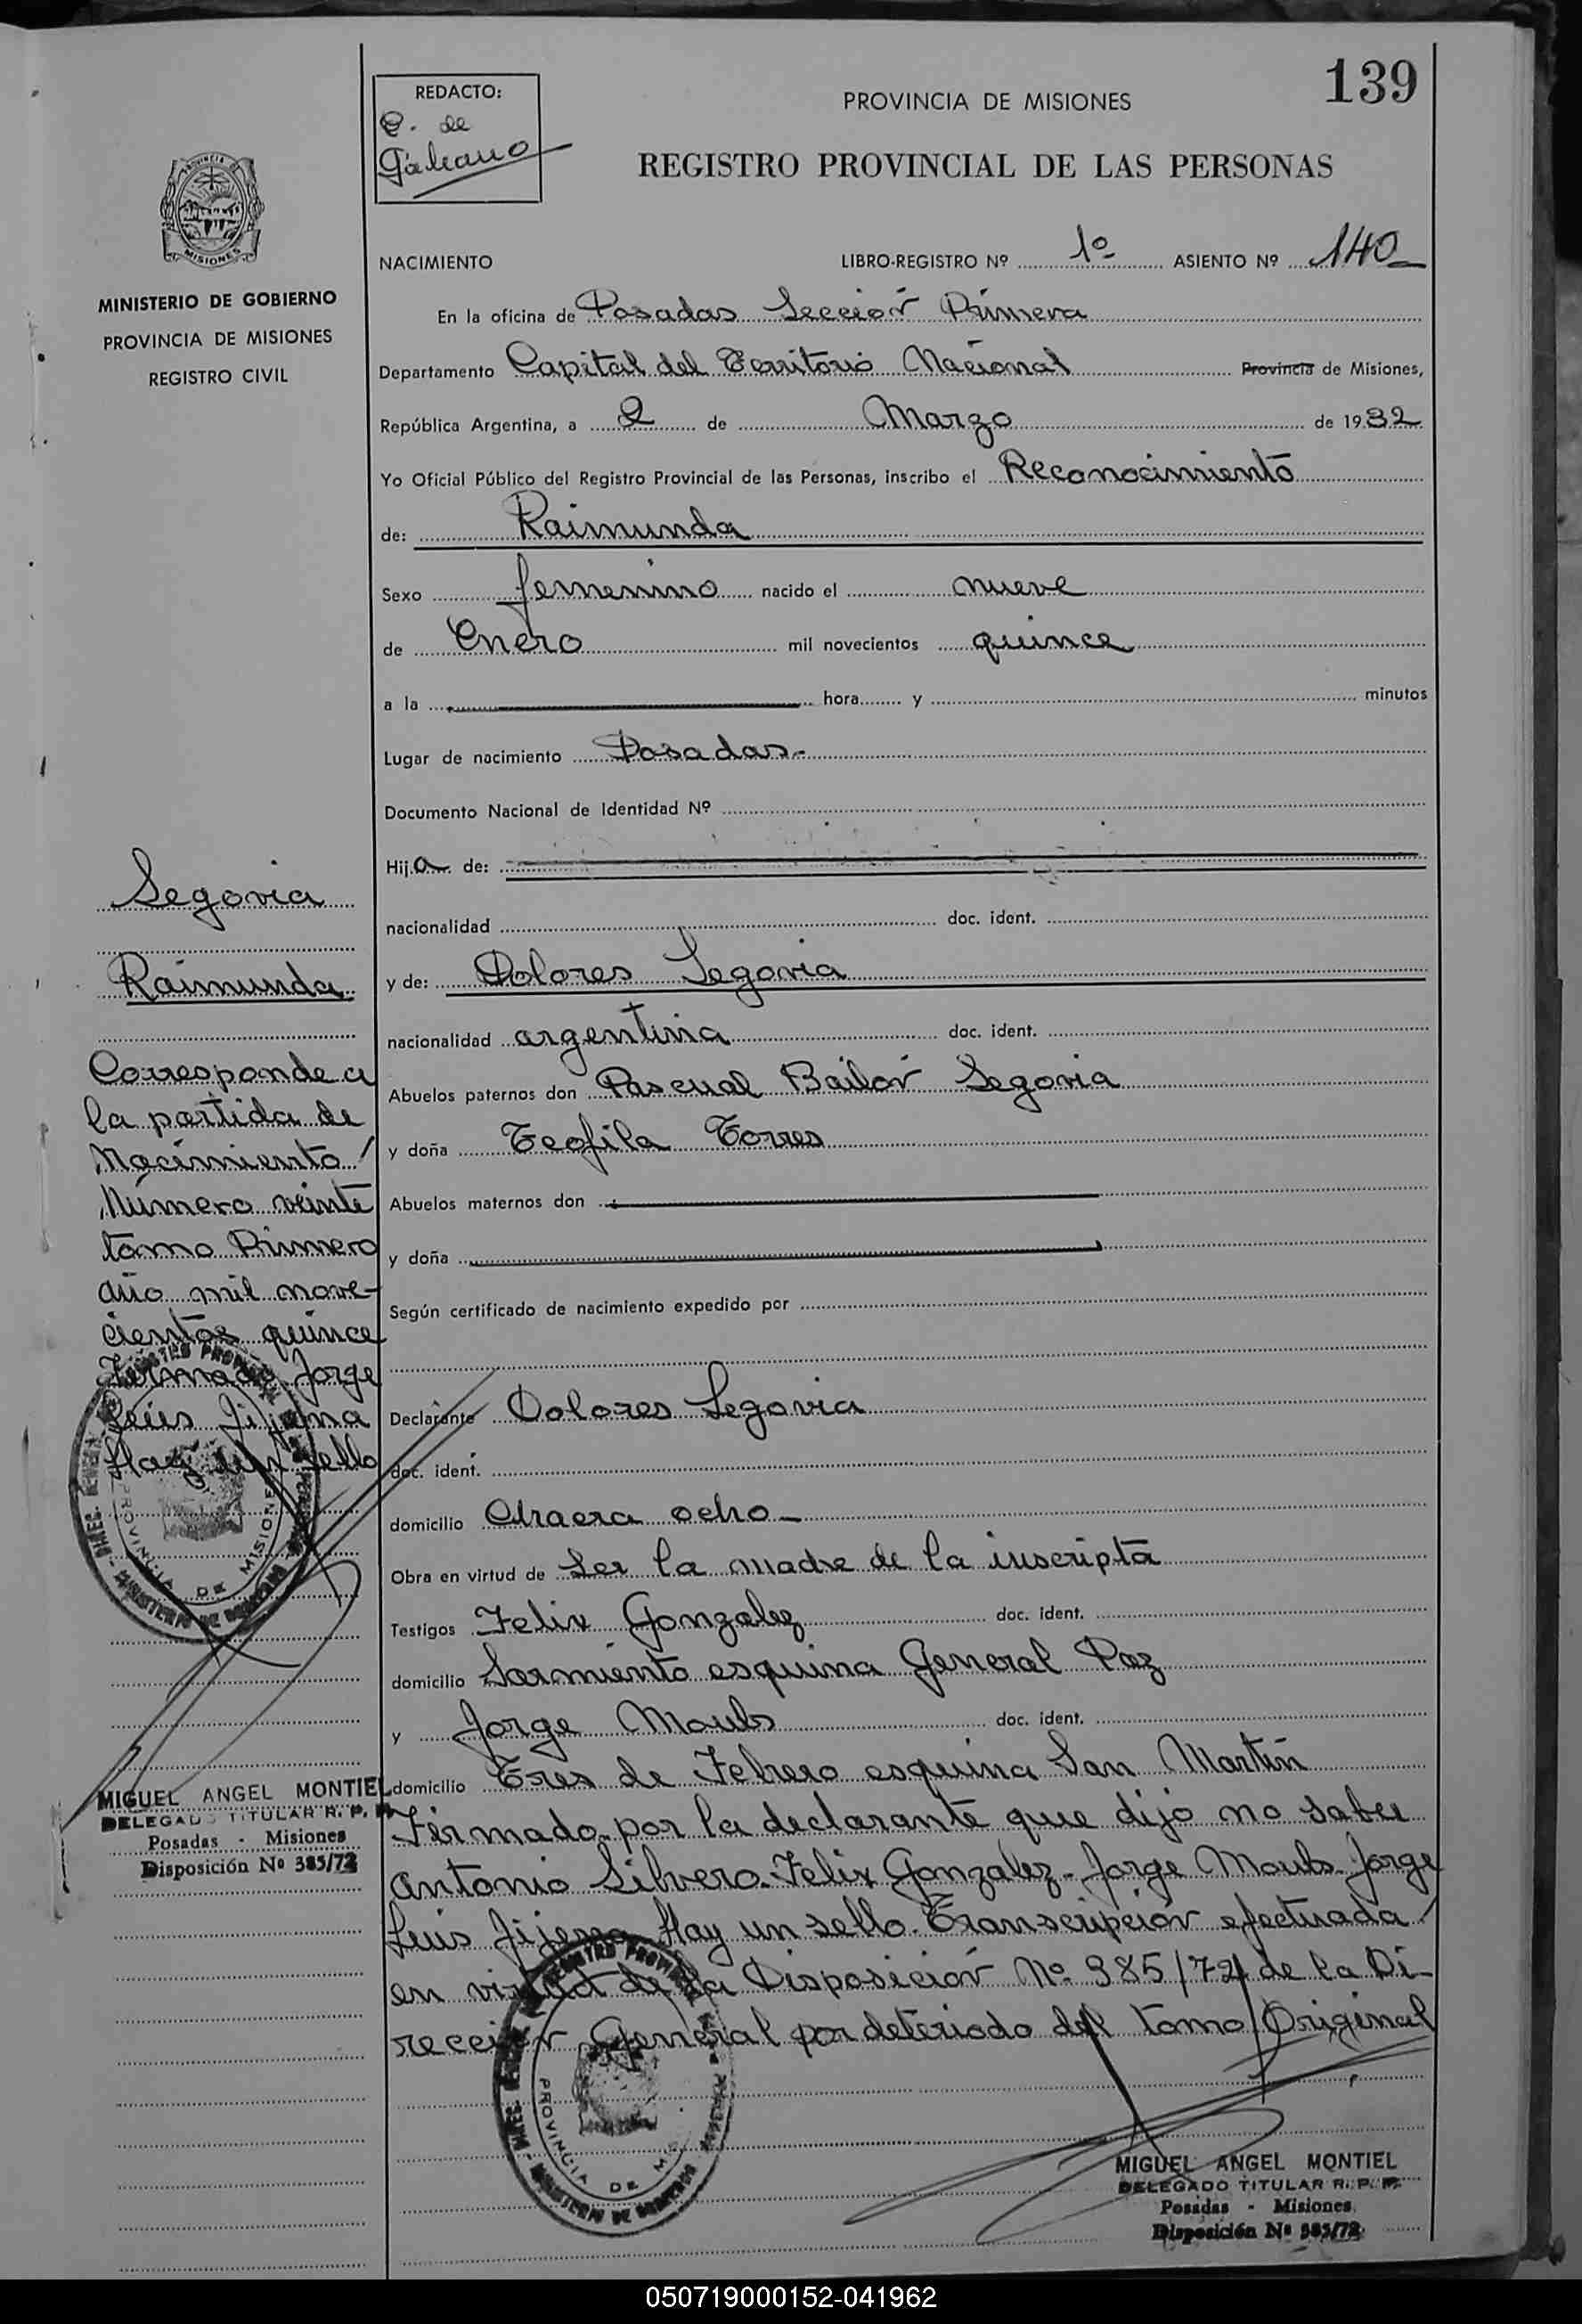 139
REDACTO:
PROVINCIA DE MISIONES
C. de
Galeano
REGISTRO PROVINCIAL DE LAS PERSONAS
MISIONES
MINISTERIO DE GOBIERNO
PROVINCIA DE MISIONES
REGISTRO CIVIL
NACIMIENTO LIBRO-REGISTRO Nº 1º ASIENTO Nº 140
En la oficina de Posadas Sección Primera
Departamento Capital del Territorio Nacional Provincia de Misiones,
República Argentina, a 2 de Marzo de 1932
Yo Oficial Público del Registro Provincial de las Personas, inscribo el Reconocimiento
de: Raimunda
Sexo femenino nacido el nueve
de Enero mil novecientos quince
a la hora y minutos
Lugar de nacimiento Posadas-
Documento Nacional de Identidad Nº
Hij a de:
nacionalidad doc. ident.
y de: Dolores Segovia
nacionalidad argentina doc. ident.
Abuelos paternos don Pascual Bailón Segovia
y doña Teofila Torres
Abuelos maternos don
y doña
Según certificado de nacimiento expedido por
Declarante Dolores Segovia
doc. ident.
domicilio Chacra ocho
Obra en virtud de Ser la madre de la inscripta
Testigos Felix Gonzalez doc. ident.
domicilio Sarmiento esquina General Paz
y Jorge Moubs doc. ident.
domicilio Tres de Febrero esquina San Martín
Firmado por la declarante que dijo no saber
Antonio Silvero-Felix Gonzalez-Jorge Moubs-Jorge
Luis Hay un sello. Transcripción efectuada
en virtud de la Disposición Nº 385/72 de la Di-
rección General por deteriodo del tomo Original
Segovia
Raimunda
Corresponde a
la partida de
Nacimiento
Número veinte
tomo Primero
año mil nove-
cientos quince
Firmado Jorge
Luis
Hay un sello
MIGUEL ANGEL MONTIEL
DELEGADO TITULAR R. P. P.
Posadas - Misiones
Disposición Nº 385/72
PROVINCIA DE MISIONES
MIGUEL ANGEL MONTIEL
DELEGADO TITULAR R. P. P.
Posadas - Misiones
Disposición Nº 385/72
050719000152-041962